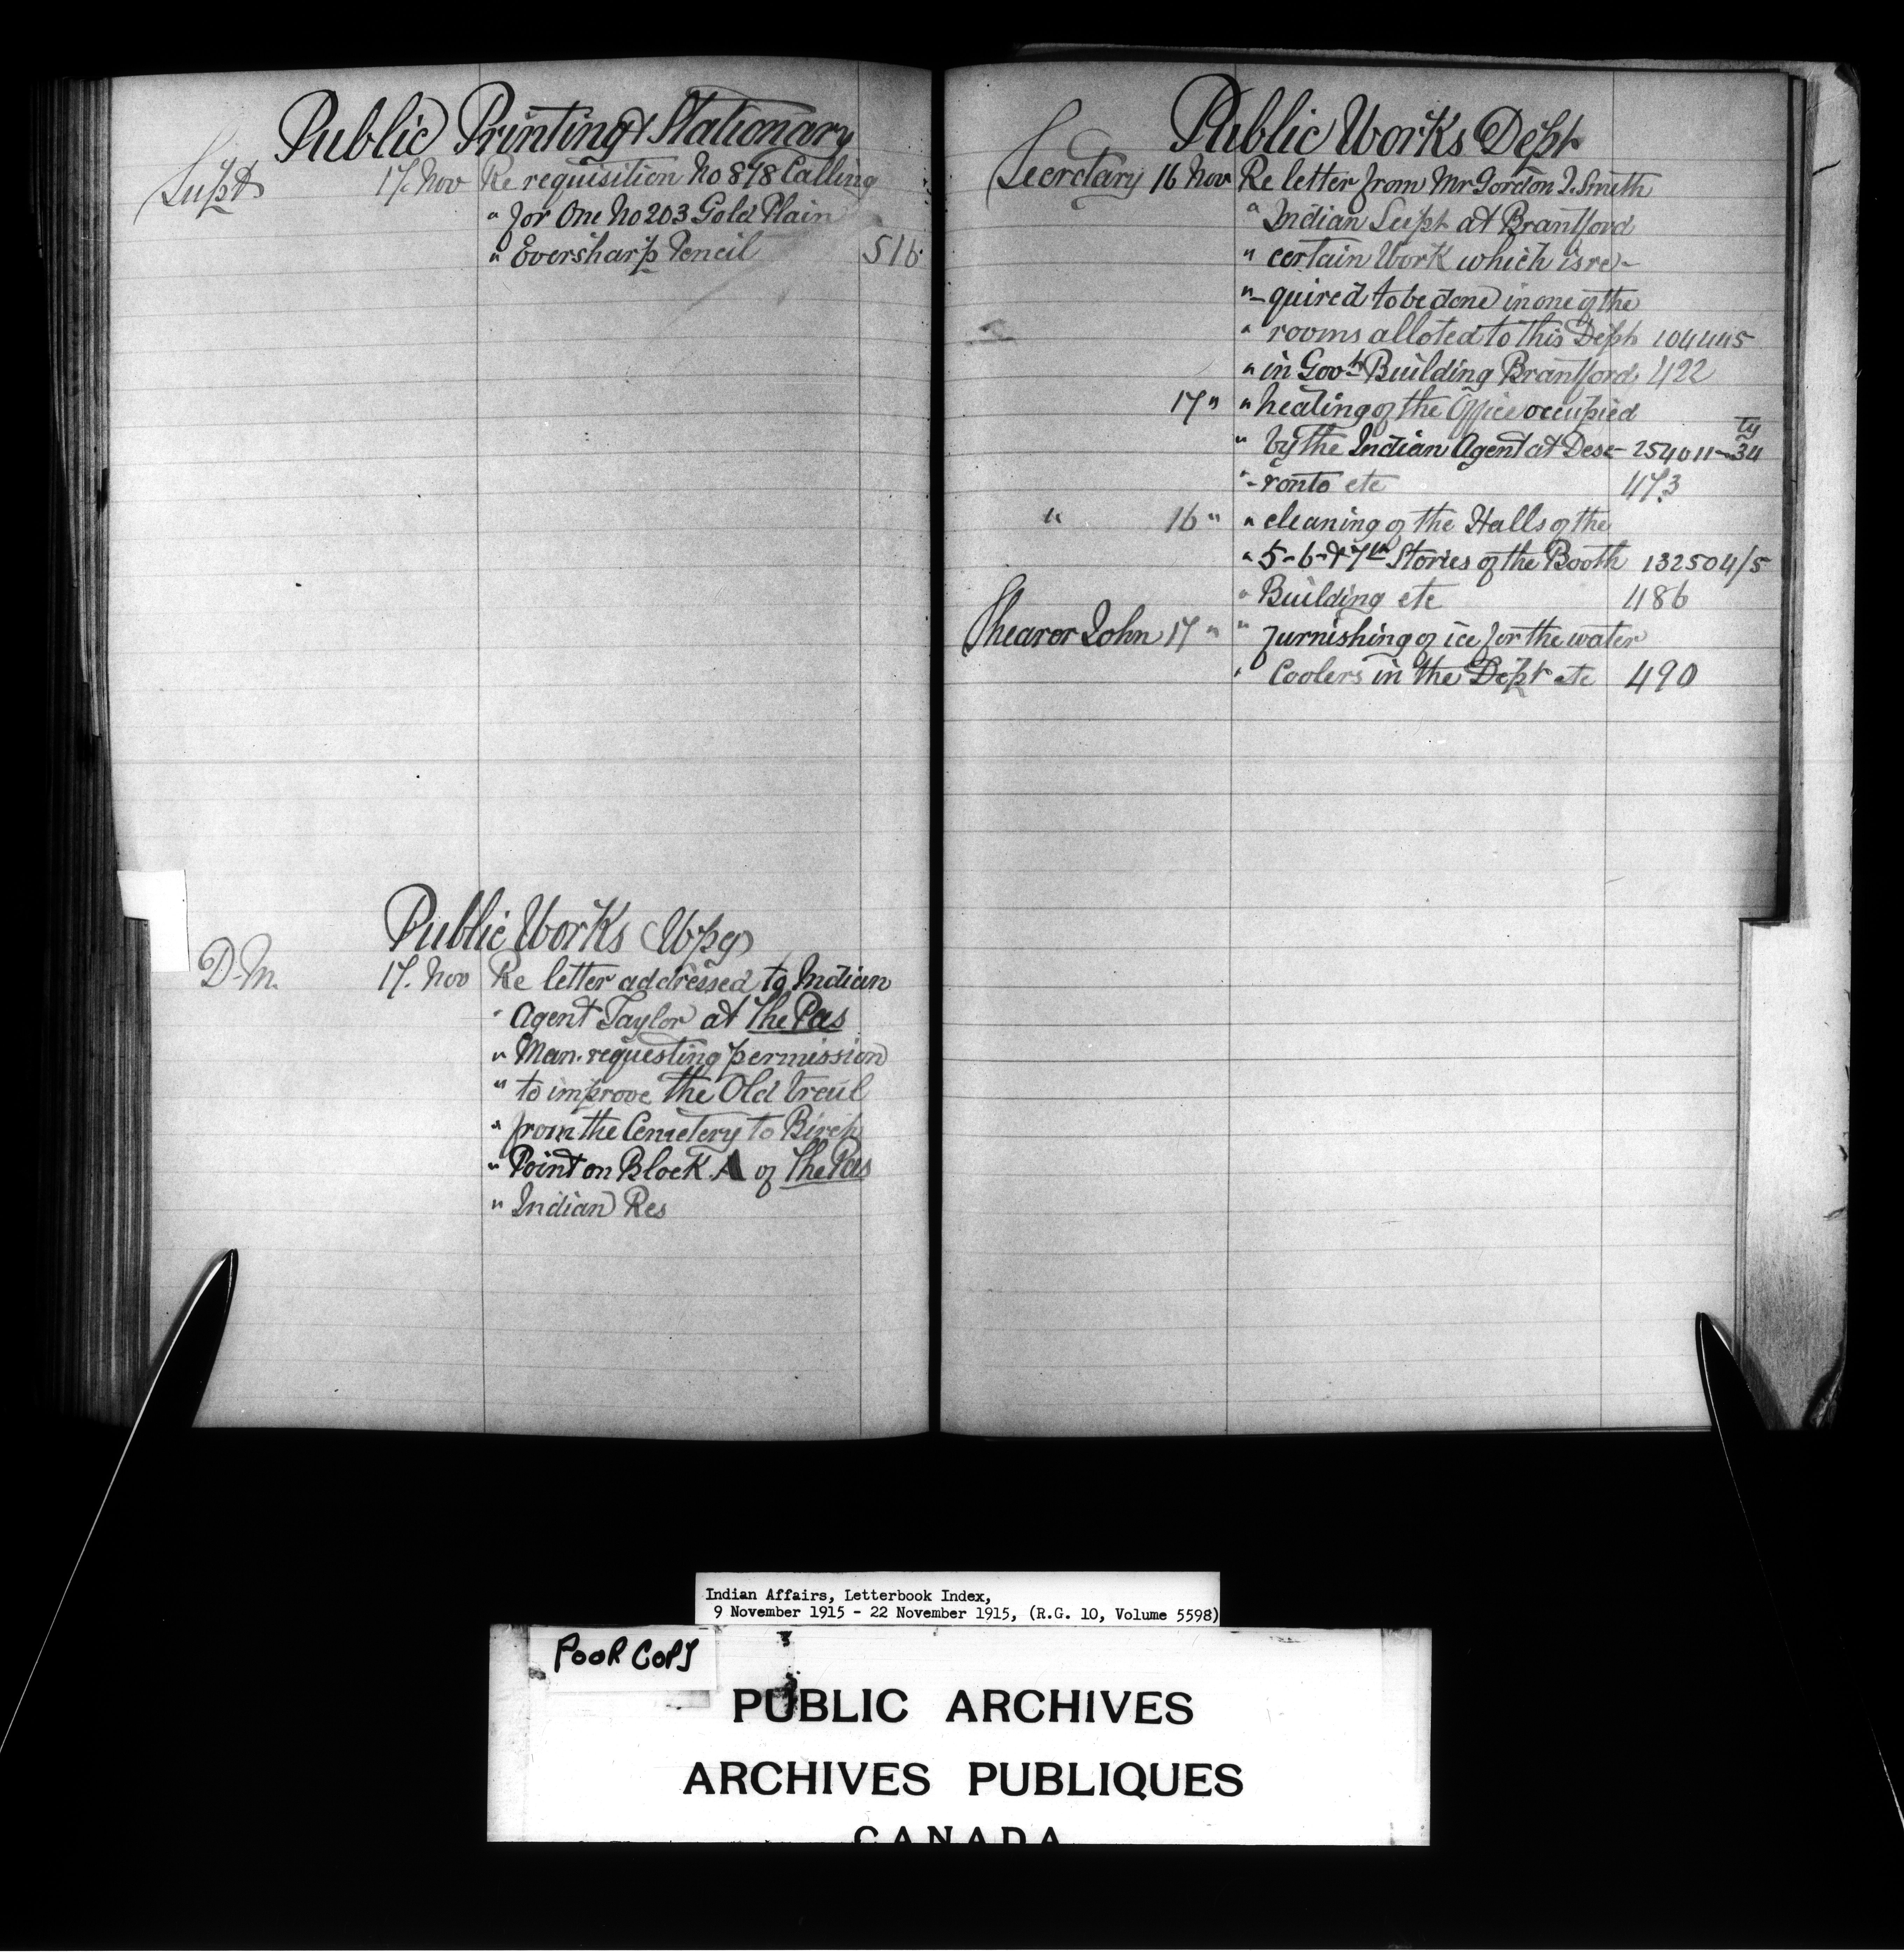 Public Printing & Stationary
Supt 17. Nov Re requisition No 878 Calling
" for One No 203 Gold Plain
" Eversharp Pencil 516
Public Works Wpg
D.M. 17. Nov Re letter addressed to Indian
" Agent Taylor at The Pas
" Man. requesting permission
" to improve the Old trail
" from the Cemetery to Birch
" Point on Block A of The Pas
" Indian Res
Public Works Dept
Secretary 16 Nov Re letter from Mr Gordon J. Smith
" Indian Supt at Brantford
" certain Work which is re-
"- quired to be done in one of the
" rooms alloted to this Dept 104445
" in Govt Building Brantford 422
17 " " heating of the Office occupied
" by the Indian Agent at Dese- 254011-34 ty
"- ronto etc 473
" 16 " " cleaning of the Halls of the
" 5-6-&7th Stories of the Booth 132504/5
" Building etc 486
Shearer John 17 " " furnishing of ice for the water
" Coolers in the Dept etc 490
Indian Affairs, Letterbook Index,
9 November 1915 - 22 November 1915, (R.G. 10, Volume 5598)
POOR COPY
PUBLIC ARCHIVES
ARCHIVES PUBLIQUES
CANADA